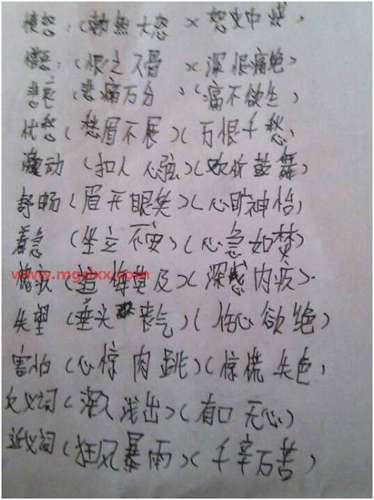 愤怒:(勃然大怒)(怒火中烧)
憎恶:(恨之入骨)(深恨痛绝)
悲哀(悲痛万分)(痛不欲生)
忧愁(愁眉不展)(万恨千愁)
激动(扣人心弦)(欢欣鼓舞)
舒畅(眉开眼笑)(心旷神怡)
着急(坐立不安)(心急如焚)
愧疚(追悔莫及)(深感内疚)
失望(垂头丧气)(伤心欲绝)
害怕(心惊肉跳)(惊慌失色)
反义词(深入浅出)(有口无心)
近义词(狂风暴雨)(千辛万苦)